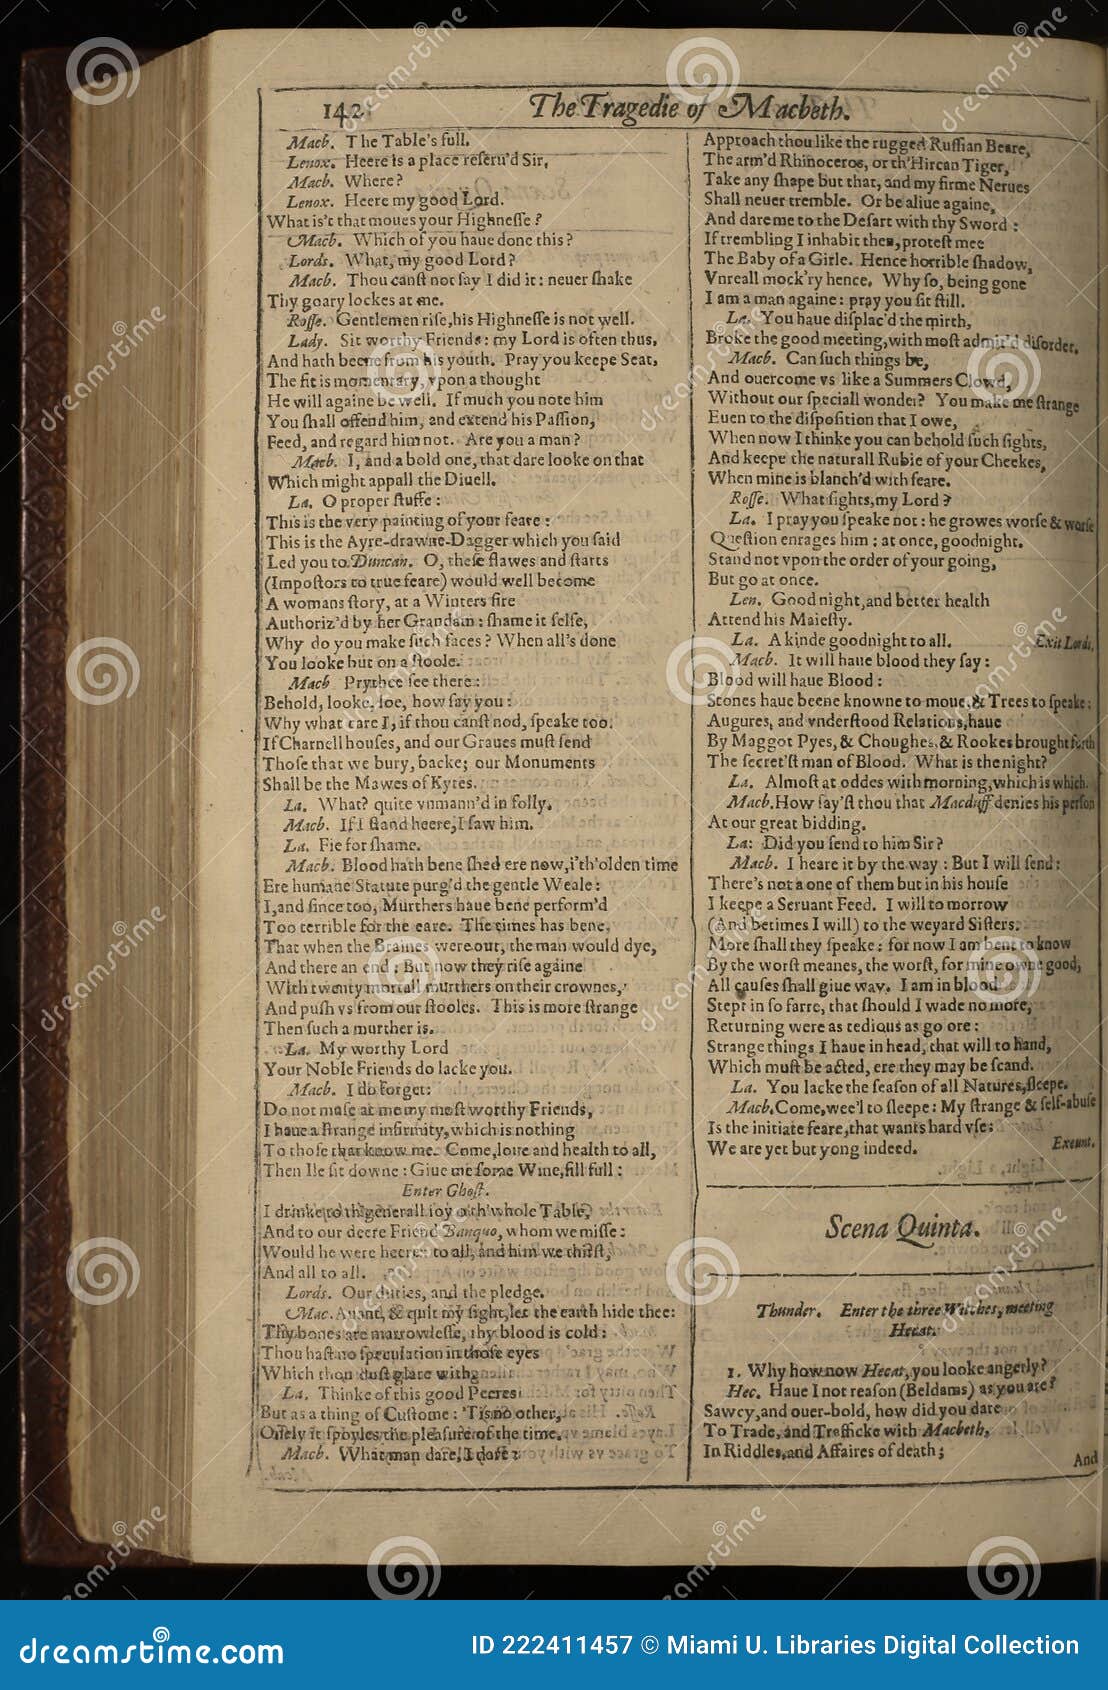 142 The Tragedie of Macbeth.
Macb. The Table's full.
Lenox. Heere is a place reseru'd Sir,
Macb. Where?
Lenox. Heere my good Lord.
What is't that moues your Highnesse?
Macb. Which of you haue done this?
Lords. What, my good Lord?
Macb. Thou canst not say I did it: neuer shake
Thy goary lockes at me.
Rosse. Gentlemen rise, his Highnesse is not well.
Lady. Sit worthy Friends: my Lord is often thus,
And hath beene from his youth. Pray you keepe Seat,
The fit is momentary, vpon a thought
He will againe be well. If much you note him
You shall offend him, and extend his Passion,
Feed, and regard him not. Are you a man?
Macb. I, and a bold one, that dare looke on that
Which might appall the Diuell.
La. O proper stuffe:
This is the very painting of your feare:
This is the Ayre-drawne-Dagger which you said
Led you to Duncan. O, these flawes and starts
(Impostors to true feare) would well become
A womans story, at a Winters fire
Authoriz'd by her Grandam: shame it selfe,
Why do you make such faces? When all's done
You looke but on a stoole.
Macb Prythee see there:
Behold, looke, loe, how say you:
Why what care I, if thou canst nod, speake too.
If Charnell houses, and our Graues must send
Those that we bury, backe; our Monuments
Shall be the Mawes of Kytes.
La. What? quite vnmann'd in folly.
Macb. If I stand heere, I saw him.
La. Fie for shame.
Macb. Blood hath bene shed ere now, i'th'olden time
Ere humane Statute purg'd the gentle Weale:
I, and since too, Murthers haue bene perform'd
Too terrible for the eare. The times has bene,
That when the Braines were out, the man would dye,
And there an end: But now they rise againe
With twenty mortall murthers on their crownes,
And push vs from our stooles. This is more strange
Then such a murther is.
La. My worthy Lord
Your Noble Friends do lacke you.
Macb. I do forget:
Do not muse at me my most worthy Friends,
I haue a strange infirmity, which is nothing
To those that know me. Come, loue and health to all,
Then Ile sit downe: Giue me some Wine, fill full:
Enter Ghost.
I drinke to th'generall ioy o'th'whole Table,
And to our deere Friend Banquo, whom we misse:
Would he were heere: to all, and him we thirst,
And all to all.
Lords. Our duties, and the pledge.
Mac. Auant, & quit my sight, let the earth hide thee:
Thy bones are marrowlesse, thy blood is cold:
Thou hast no speculation in those eyes
Which thou dost glare with.
La. Thinke of this good Peeres
But as a thing of Custome: 'Tis no other,
Onely it spoyles the pleasure of the time.
Macb. What man dare, I dare:
Approach thou like the rugged Russian Beare,
The arm'd Rhinoceros, or th'Hircan Tiger,
Take any shape but that, and my firme Nerues
Shall neuer tremble. Or be aliue againe,
And dare me to the Desart with thy Sword:
If trembling I inhabit then, protest mee
The Baby of a Girle. Hence horrible shadow,
Vnreall mock'ry hence. Why so, being gone
I am a man againe: pray you sit still.
La. You haue displac'd the mirth,
Broke the good meeting, with most admir'd disorder.
Macb. Can such things be,
And ouercome vs like a Summers Clowd,
Without our speciall wonder? You make me strange
Euen to the disposition that I owe,
When now I thinke you can behold such sights,
And keepe the naturall Rubie of your Cheekes,
When mine is blanch'd with feare.
Rosse. What sights, my Lord?
La. I pray you speake not: he growes worse & worse
Question enrages him: at once, goodnight.
Stand not vpon the order of your going,
But go at once.
Len. Good night, and better health
Attend his Maiesty.
La. A kinde goodnight to all. Exit Lords.
Macb. It will haue blood they say:
Blood will haue Blood:
Stones haue beene knowne to moue, & Trees to speake:
Augures, and vnderstood Relations, haue
By Maggot Pyes, & Choughes, & Rookes brought forth
The secret'st man of Blood. What is the night?
La. Almost at oddes with morning, which is which.
Macb. How say'st thou that Macduff denies his person
At our great bidding.
La: Did you send to him Sir?
Macb. I heare it by the way: But I will send:
There's not a one of them but in his house
I keepe a Seruant Feed. I will to morrow
(And betimes I will) to the weyard Sisters.
More shall they speake: for now I am bent to know
By the worst meanes, the worst, for mine owne good,
All causes shall giue way. I am in blood
Stept in so farre, that should I wade no more,
Returning were as tedious as go ore:
Strange things I haue in head, that will to hand,
Which must be acted, ere they may be scand.
La. You lacke the season of all Natures, sleepe.
Macb. Come, wee'l to sleepe: My strange & self-abuse
Is the initiate feare, that wants hard vse:
We are yet but yong indeed. Exeunt.
Scena Quinta.
Thunder. Enter the three Witches, meeting
Hecat.
1. Why how now Hecat, you looke angerly?
Hec. Haue I not reason (Beldams) as you are?
Sawcy, and ouer-bold, how did you dare
To Trade, and Trafficke with Macbeth,
In Riddles, and Affaires of death;
And
dreamstime.com ID 222411457 © Miami U. Libraries Digital Collection